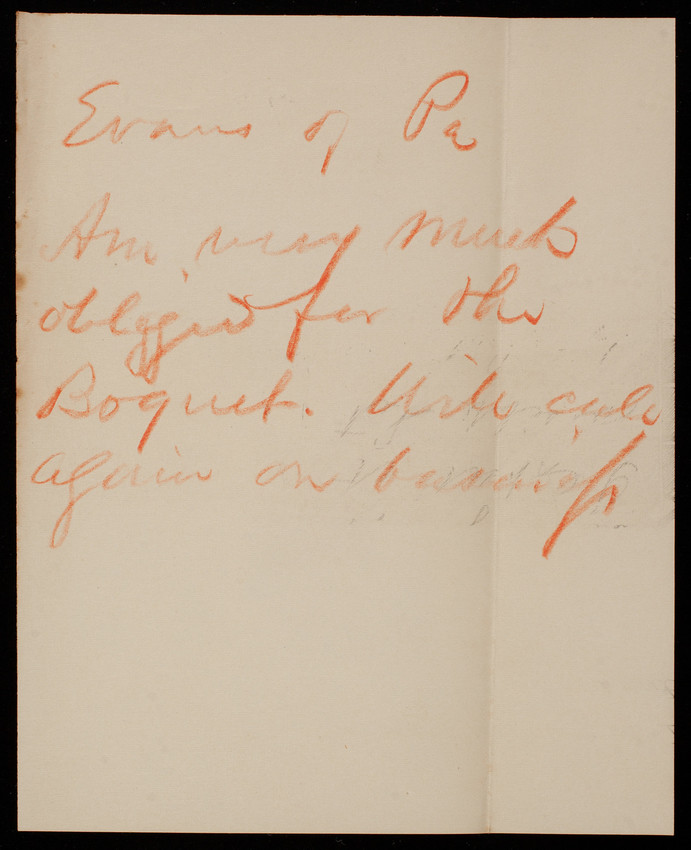 Evans of Pa
Am very much
obliged for the
Boquet. Will call
again on business